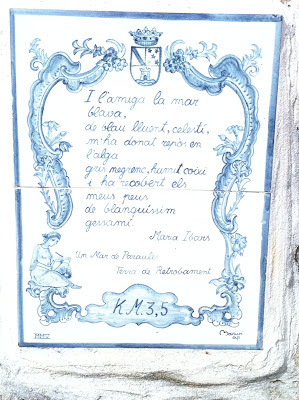 I l'amiga la mar
blava,
de blau lluent, celestí,
m'ha donat repòs en
l'alga
gris negrenc, humit coixí
i ha recobert els
meus peus
de blanquíssim
gessamí.
Maria Ibars
Un Mar de Paraules
Terra de Retrobament
K.M. 3,5
MMV